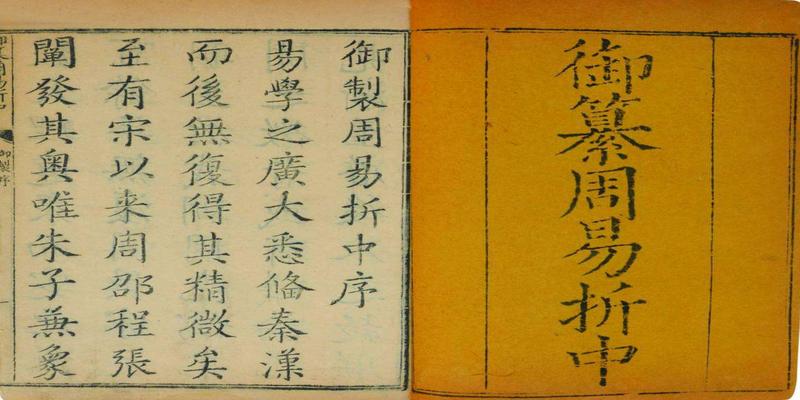 御纂周易折中
御製周易折中序
易學之廣大悉備秦漢
而後無復得其精微矣
至有宋以来周邵程張
闡發其奥唯朱子蕪象
御製序